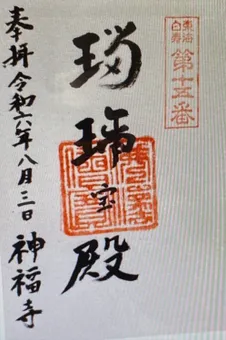 東海
白寿
第十五番
瑠璃宝殿
奉拝 令和六年八月三日 神福寺